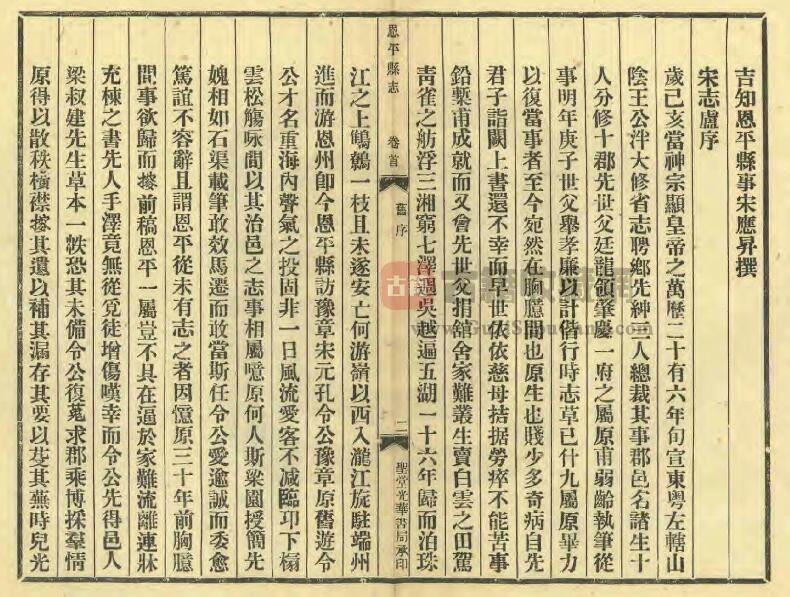 吉知恩平縣事宋應昇撰
宋志盧序
歲己亥當神宗顯皇帝之萬曆二十有六年旬宣東粤左轄山
陰王公泮大修省志聘鄉先紳三人總裁其事郡邑名諸生十
人分修十郡先世父廷龍領肇慶一府之屬原甫弱齡執筆從
事明年庚子世父舉孝廉以計偕行時志草已什九屬原畢力
以復當事者至今宛然在胸臆間也原生也賤少多奇病自先
君子詣闕上書還不幸而早世依依慈母拮据勞瘁不能苦事
鉛槧甫成就而又會先世父捐舘舍家難叢生賣白雲之田駕
靑雀之舫浮三湘窮七澤過吳越遍五湖一十六年歸而泊珠
恩平縣志 卷首 舊序 二 聖堂光華書局承印
江之上鷦鷯一枝且未遂安亡何游嶺以西入瀧江旋駐端州
進而游恩州卽今恩平縣訪豫章宋元孔令公豫章原舊遊令
公才名重海內聲氣之投固非一日風流愛客不减臨卭下榻
雲松觴咏間以其治邑之志事相屬噫原何人斯梁園授簡光
媿相如石渠載筆敢效馬遷而敢當斯任令公愛逾誠而委愈
篤誼不容辭且謂恩平從未有志之者因憶原三十年前胸臆
間事欲歸而摉前稿恩平一屬豈不具在逼於家難流離連牀
充棟之書先人手澤竟無從覓徒增傷嘆幸而令公先得邑人
梁叔建先生草本一帙恐其未備令公復蒐求郡乘博採羣情
原得以散秩橫襟摉其遺以補其漏存其要以芟其蕪時兒光